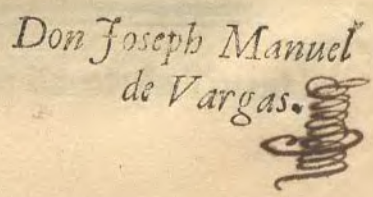 Don Joseph Manuel
de Vargas.